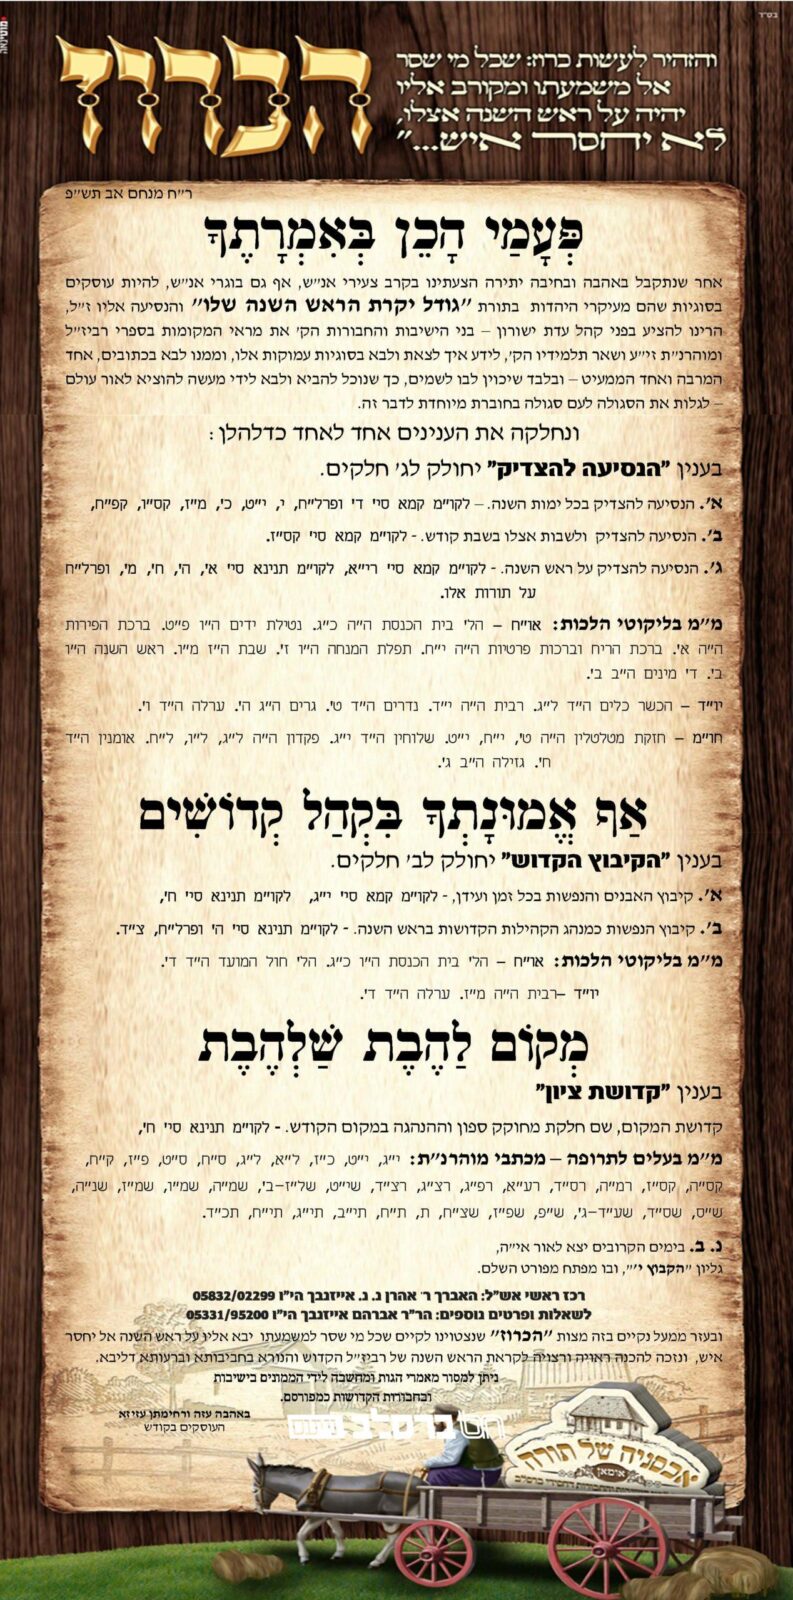 בס״ד
הכרוז
והזהיר לעשות כרוז: שכל מי שסר
אל משמעתו ומקורב אליו
יהיה על ראש השנה אצלו,
לא יחסר איש..."
ר״ח מנחם אב תש״פ
פְּעָמַי הָכֵן בְּאִמְרָתֶךָ
אחר שנתקבל באהבה ובחיבה יתירה הצעתינו בקרב צעירי אנ״ש, אף גם בוגרי אנ״ש, להיות עוסקים
בסוגיות שהם מעיקרי היהדות בתורת "גודל יקרת הראש השנה שלו" והנסיעה אליו ז״ל,
הרינו להציע בפני קהל עדת ישורון – בני הישיבות והחבורות הק' את מראי המקומות בספרי רביז״ל
ומוהרנ״ת זי״ע ושאר תלמידיו הק', לידע איך לצאת ולבא בסוגיות עמוקות אלו, וממנו לבא בכתובים, אחד
המרבה ואחד הממעיט – ובלבד שיכוין לבו לשמים, כך שנוכל להביא ולבא לידי מעשה להוציא לאור עולם
– לגלות את הסגולה לעם סגולה בחוברת מיוחדת לדבר זה.
ונחלקה את הענינים אחד לאחד כדלהלן :
בענין "הנסיעה להצדיק" יחולק לג' חלקים.
א'. הנסיעה להצדיק בכל ימות השנה. – לקו״מ קמא סי' ד' ופרל״ח, י, י״ט, כ', מ״ז, קס״ו, קפ״ח,
ב'. הנסיעה להצדיק ולשבות אצלו בשבת קודש. - לקו״מ קמא סי' קס״ז.
ג'. הנסיעה להצדיק על ראש השנה. - לקו״מ קמא סי' רי״א, לקו״מ תנינא סי' א', ה', ח', מ', ופרל״ח
על תורות אלו.
מ״מ בליקוטי הלכות: או״ח – הל' בית הכנסת ה״ה כ״ג. נטילת ידים ה״ו פ״ט. ברכת הפירות
ה״ה א'. ברכת הריח וברכות פרטיות ה״ה י״ח. תפלת המנחה ה״ו ז'. שבת ה״ז מ״ו. ראש השנה ה״ו
ב'. ד' מינים ה״ב ב'.
יו״ד – הכשר כלים ה״ד ל״ג. רבית ה״ה י״ד. נדרים ה״ד ט'. גרים ה״ג ה'. ערלה ה״ד ו'.
חו״מ – חזקת מטלטלין ה״ה ט', י״ח, י״ט. שלוחין ה״ד י״ג. פקדון ה״ה ל״ג, ל״ו, ל״ח. אומנין ה״ד
ח'. גזילה ה״ב ג'.
אַף אֱמוּנָתְךָ בִּקְהַל קְדוֹשִׁים
בענין "הקיבוץ הקדוש" יחולק לב' חלקים.
א'. קיבוץ האבנים והנפשות בכל זמן ועידן, - לקו״מ קמא סי' י״ג, לקו״מ תנינא סי' ח',
ב'. קיבוץ הנפשות כמנהג הקהילות הקדושות בראש השנה. - לקו״מ תנינא סי' ה' ופרל״ח, צ״ד.
מ״מ בליקוטי הלכות: או״ח – הל' בית הכנסת ה״ו כ״ג. הל' חול המועד ה״ד ד'.
יו״ד –רבית ה״ה מ״ז. ערלה ה״ד ד'.
מְקוֹם לַהֶבֶת שַׁלְהֶבֶת
בענין "קדושת ציון"
קדושת המקום, שם חלקת מחוקק ספון וההנהגה במקום הקודש. - לקו״מ תנינא סי' ח',
מ״מ בעלים לתרופה – מכתבי מוהרנ״ת: י״ג, י״ט, כ״ז, ל״א, ל״ג, ס״ח, ס״ט, פ״ז, ק״ח,
קס״ה, קס״ז, רמ״ה, רס״ד, רע״א, רפ״ג, רצ״ג, רצ״ד, שי״ט, של״ז–ב', שמ״ה, שמ״ו, שמ״ז, שנ״ה,
ש״ס, שס״ד, שע״ד–ג', ש״פ, שפ״ז, שצ״ח, ת, ת״ח, תי״ב, תי״ג, תי״ח, תכ״ד.
נ. ב. בימים הקרובים יצא לאור אי״ה,
גליון "הקבוץ י'", ובו מפתח מפורט השלם.
רכז ראשי אש״ל: האברך ר' אהרן נ. נ. אייזנבך הי״ו 05832/02299
לשאלות ופרטים נוספים: הר״ר אברהם אייזנבך הי״ו 05331/95200
ובעזר ממעל נקיים בזה מצות "הכרוז" שנצטוינו לקיים שכל מי שסר למשמעתו יבא אליו על ראש השנה אל יחסר
איש, ונזכה להכנה ראויה ורצויה לקראת הראש השנה של רביז״ל הקדוש והנורא בחביבותא וברעותא דליבא.
ניתן למסור מאמרי הגות ומחשבה לידי הממונים בישיבות
ובחבורות הקדושות כמפורסם.
באהבה עזה ורחימתן עזיזא
העוסקים בקודש
אכסניה של תורה
אומאן